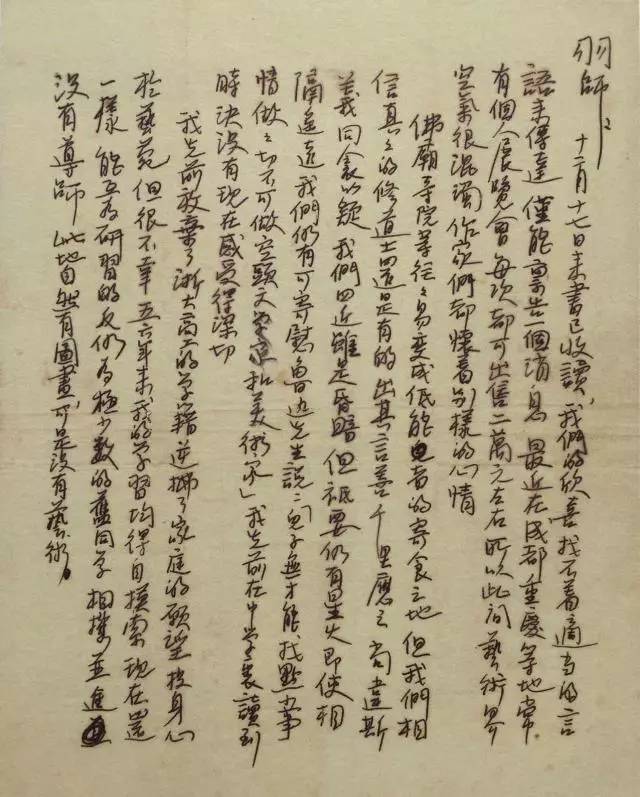 羽師：
十一月十七日来書已收讀，我們的欣喜找不着適当的言
語来傳達 僅能一個消息 最近在成都重慶等地常
有個人展覽會 每次都可出售二萬元左右 所以此间藝術界
空氣很混濁 作家們都懷着别樣的心情
佛廟寺院等往々易变成低能者的寄食之地 但我們相
信真々的修道士還是有的 出其言善千里應之 苟違斯
義同衾以疑 我們四近雖是昏暗 但祗要仍有星火 即使相
隔遥遠 我們仍有可寄慰 魯迅先生説「兒子無才能，找點小事
情做々切不可做空頭文學家和美術家」我先前在中学裏讀到
時决没有现在感受得深切
我先前放棄了浙大高工的学籍 逆拂了家庭的願望 投身心
於藝苑 但很不幸 五六年来我的学習均得自摸索 现在還
一樣 能互為研習的 反仍為極少数的舊同学 相携並進
没有導師 此地自然有圖畫，可是没有藝術，